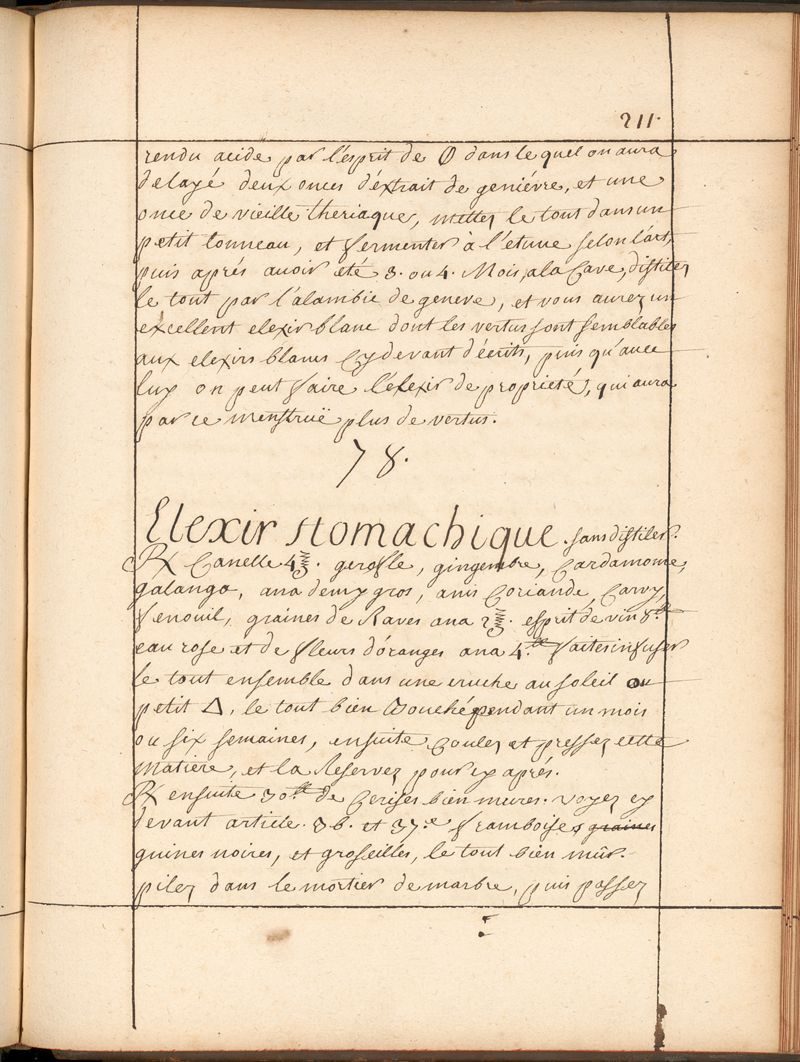 211.
rendu acide par l'esprit de 🜕 dans lequel on aura
delayé deux onces d'éxtrait de geniévre, et une
once de vieille theriaque, mettez le tout dans un
petit tonneau, et fermenter à l'etuue selon l'art,
puis aprés auoir été 3. ou 4. Mois, a la Caue, distilez
le tout par l'alambic de geneve, et vous aurez un
excellent elexir blanc dont les vertus sont semblables
aux elexirs blancs Cy devant d'écrits, puis qu'auec
luy on peut faire l'élexir de propriétés, qui aura
par ce menstruë plus de vertus.
78.
Elexir stomachique. sans distiler.
℞ Canelle 4℥. gerofle, gingembre, Cardamome,
galanga, ana demy gros, anis Coriande, Carvy,
fenouil, graines de Raves ana 2℥. esprit de vin 8.lt
eau rose et de fleurs d'oranges ana 4.lt faites infuser
le tout ensemble dans une cruche au soleil ou
petit △, le tout bien Bouché pendant un mois
ou six semaines, ensuite Coulez et pressez cette
Matiere, et la Reservez pour cy aprés.
℞ ensuite 30lt de Cerises bien meures. voyez cy
devant article. 36. et 37.e framboises graines
guines noires, et groseilles, le tout bien mûr.
pilez dans le mortier de marbre, puis passez